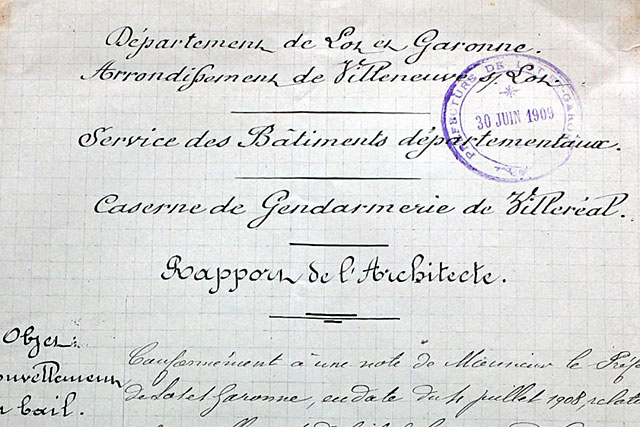 Département de Lot et Garonne.
Arrondissement de Villeneuve s/ Lot.
PRÉFECTURE DE LOT-ET-GARONNE
30 JUIN 1909
Service des Bâtiments départementaux.
Caserne de Gendarmerie de Villeréal.
Rapport de l'Architecte.
Objet:
ouvellement
bail.
Conformément à une note de Monsieur le Préfe
de Lot et Garonne, en date du juillet 1908, relat